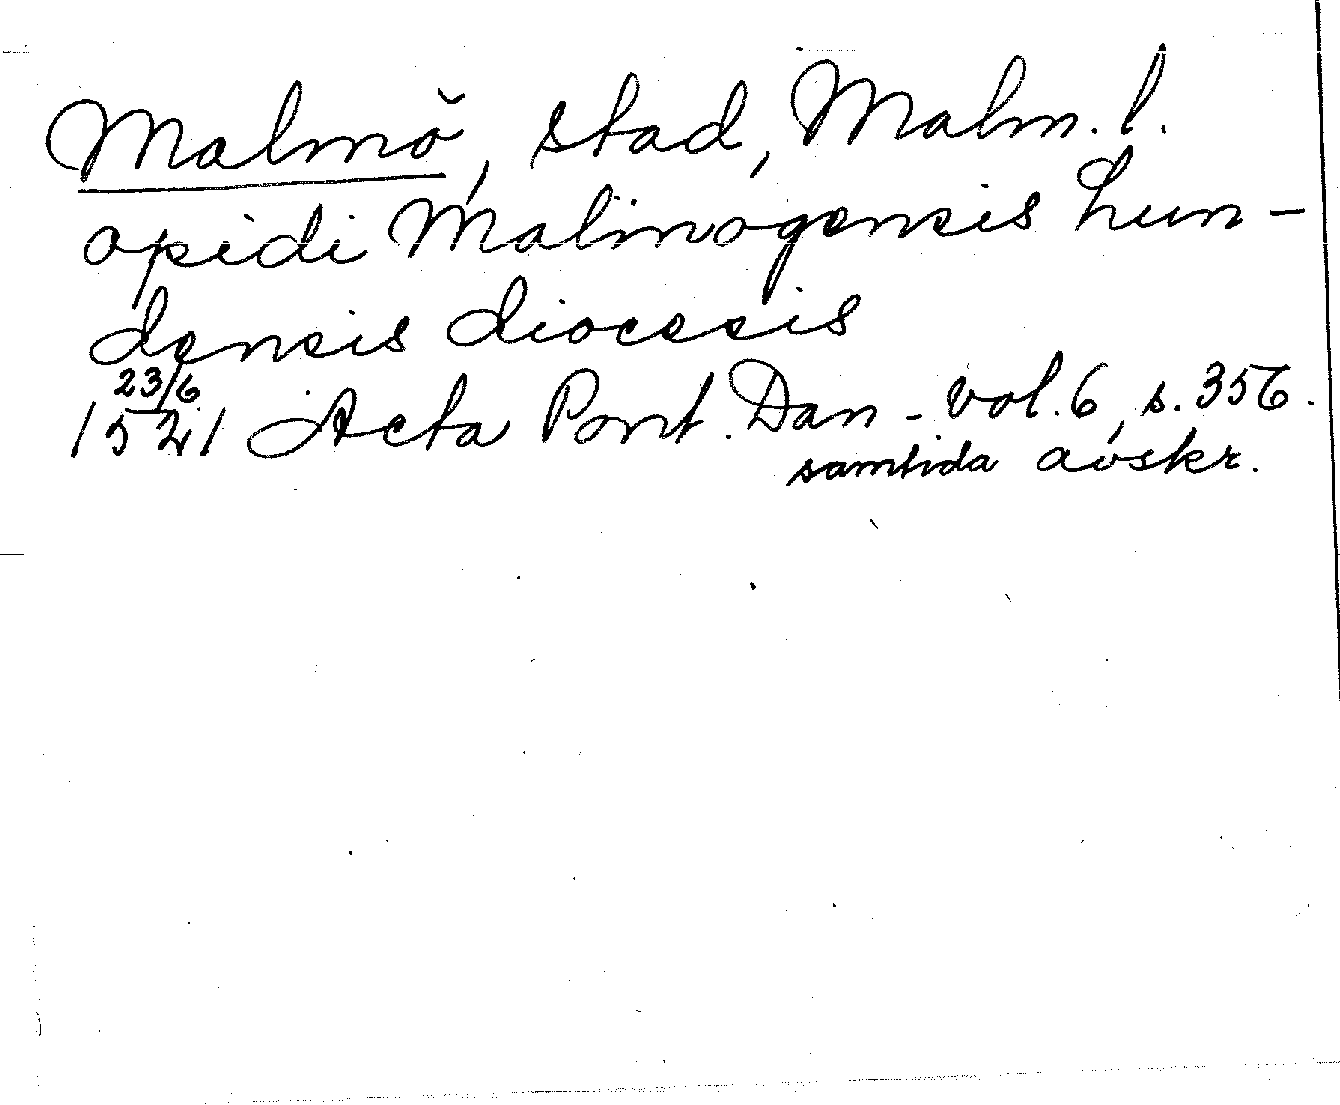 Malmö, stad, Malm. l.
opidi Malmogensis Lun-
densis diocesis
23/6
1521 Acta Pont. Dan - vol. 6, s. 356.
samtida avskr.